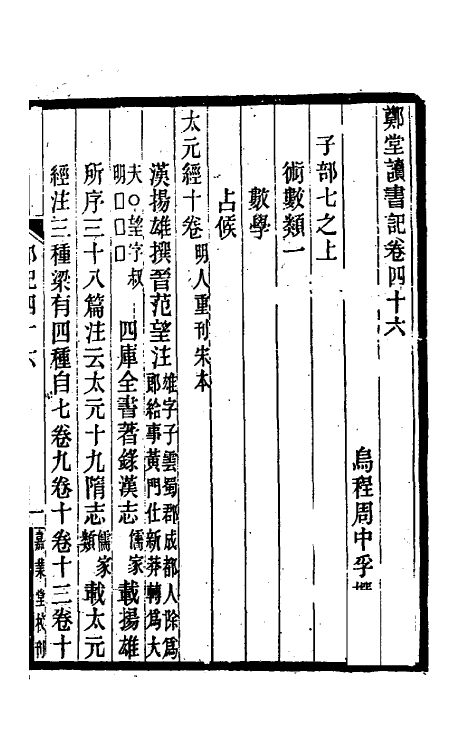 鄭堂讀書記卷四十六
烏程周中孚撰
子部七之上
術數類一
數學
占候
太元經十卷明人重刊宋本
漢揚雄撰晉范望注雄字子雲蜀郡成都人除爲
郎給事黃門仕新莽轉爲大
夫○望字叔
明□□□四庫全書著錄漢志儒家載揚雄
所序三十八篇注云太元十九隋志儒家類載太元
經注三種梁有四種自七卷九卷十卷十三卷十
一
嘉業堂校刊